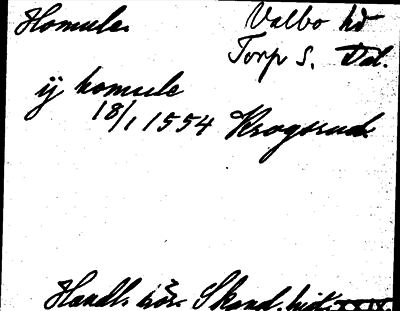 Homule.
Valbo hd
Torp s. Dal.
ij homule
18/1 1554 Krogsrud.
Handl. rör. Skand. hist. XXIX.